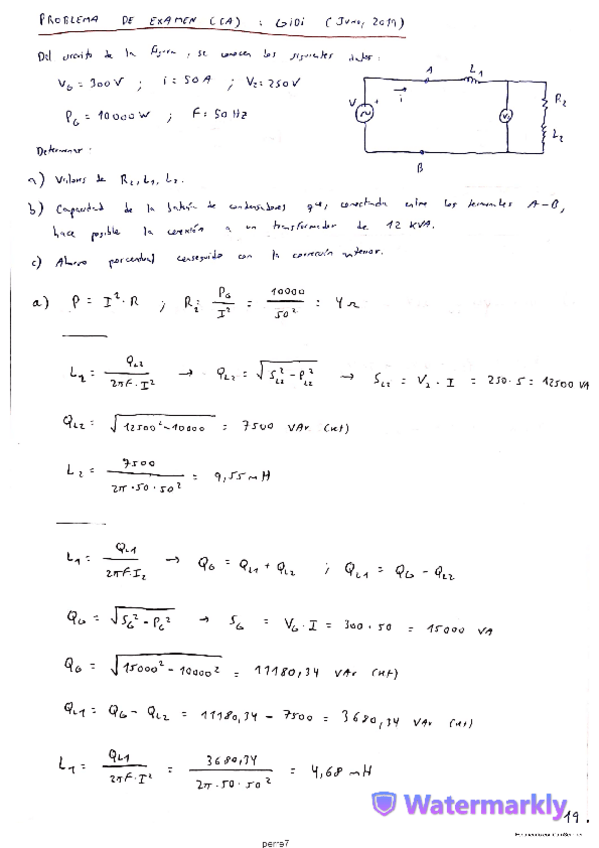 PROBLEMA DE EXAMEN (CA) : GIDI (Junio, 2019)
Del circuito de la figura, se conocen los siguientes datos:
V_G = 300V ; i = 50A ; V_2 = 250V
P_G = 10000W ; F = 50Hz
A L_1
i
R_2
L_2
B
Determinar:
a) Valores de R_2, L_1, L_2.
b) Capacidad de la batería de condensadores que, conectada entre los terminales A-B,
hace posible la conexión a un transformador de 12 KVA.
c) Ahorro porcentual conseguido con la corrección anterior.
a) P = I² · R ; R_2 = P_G / I² = 10000 / 50² = 4 Ω
L_2 = Q_L2 / 2πF·I² → Q_L2 = √(S_L2² - P_L2²) → S_L2 = V_2 · I = 250·5 = 12500 VA
Q_L2 = √(12500² - 10000) = 7500 VAr
L_2 = 7500 / 2π·50·50² = 9,55 mH
L_1 = Q_L1 / 2πF·I_2 → Q_G = Q_L1 + Q_L2 ; Q_L1 = Q_G - Q_L2
Q_G = √(S_G² - P_G²) → S_G = V_G · I = 300·50 = 15000 VA
Q_G = √(15000² - 10000²) = 11180,34 VAr
Q_L1 = Q_G - Q_L2 = 11180,34 - 7500 = 3680,34 VAr
L_1 = Q_L1 / 2πF·I² = 3680,34 / 2π·50·50² = 4,68 mH
Watermarkly
19.
perre7